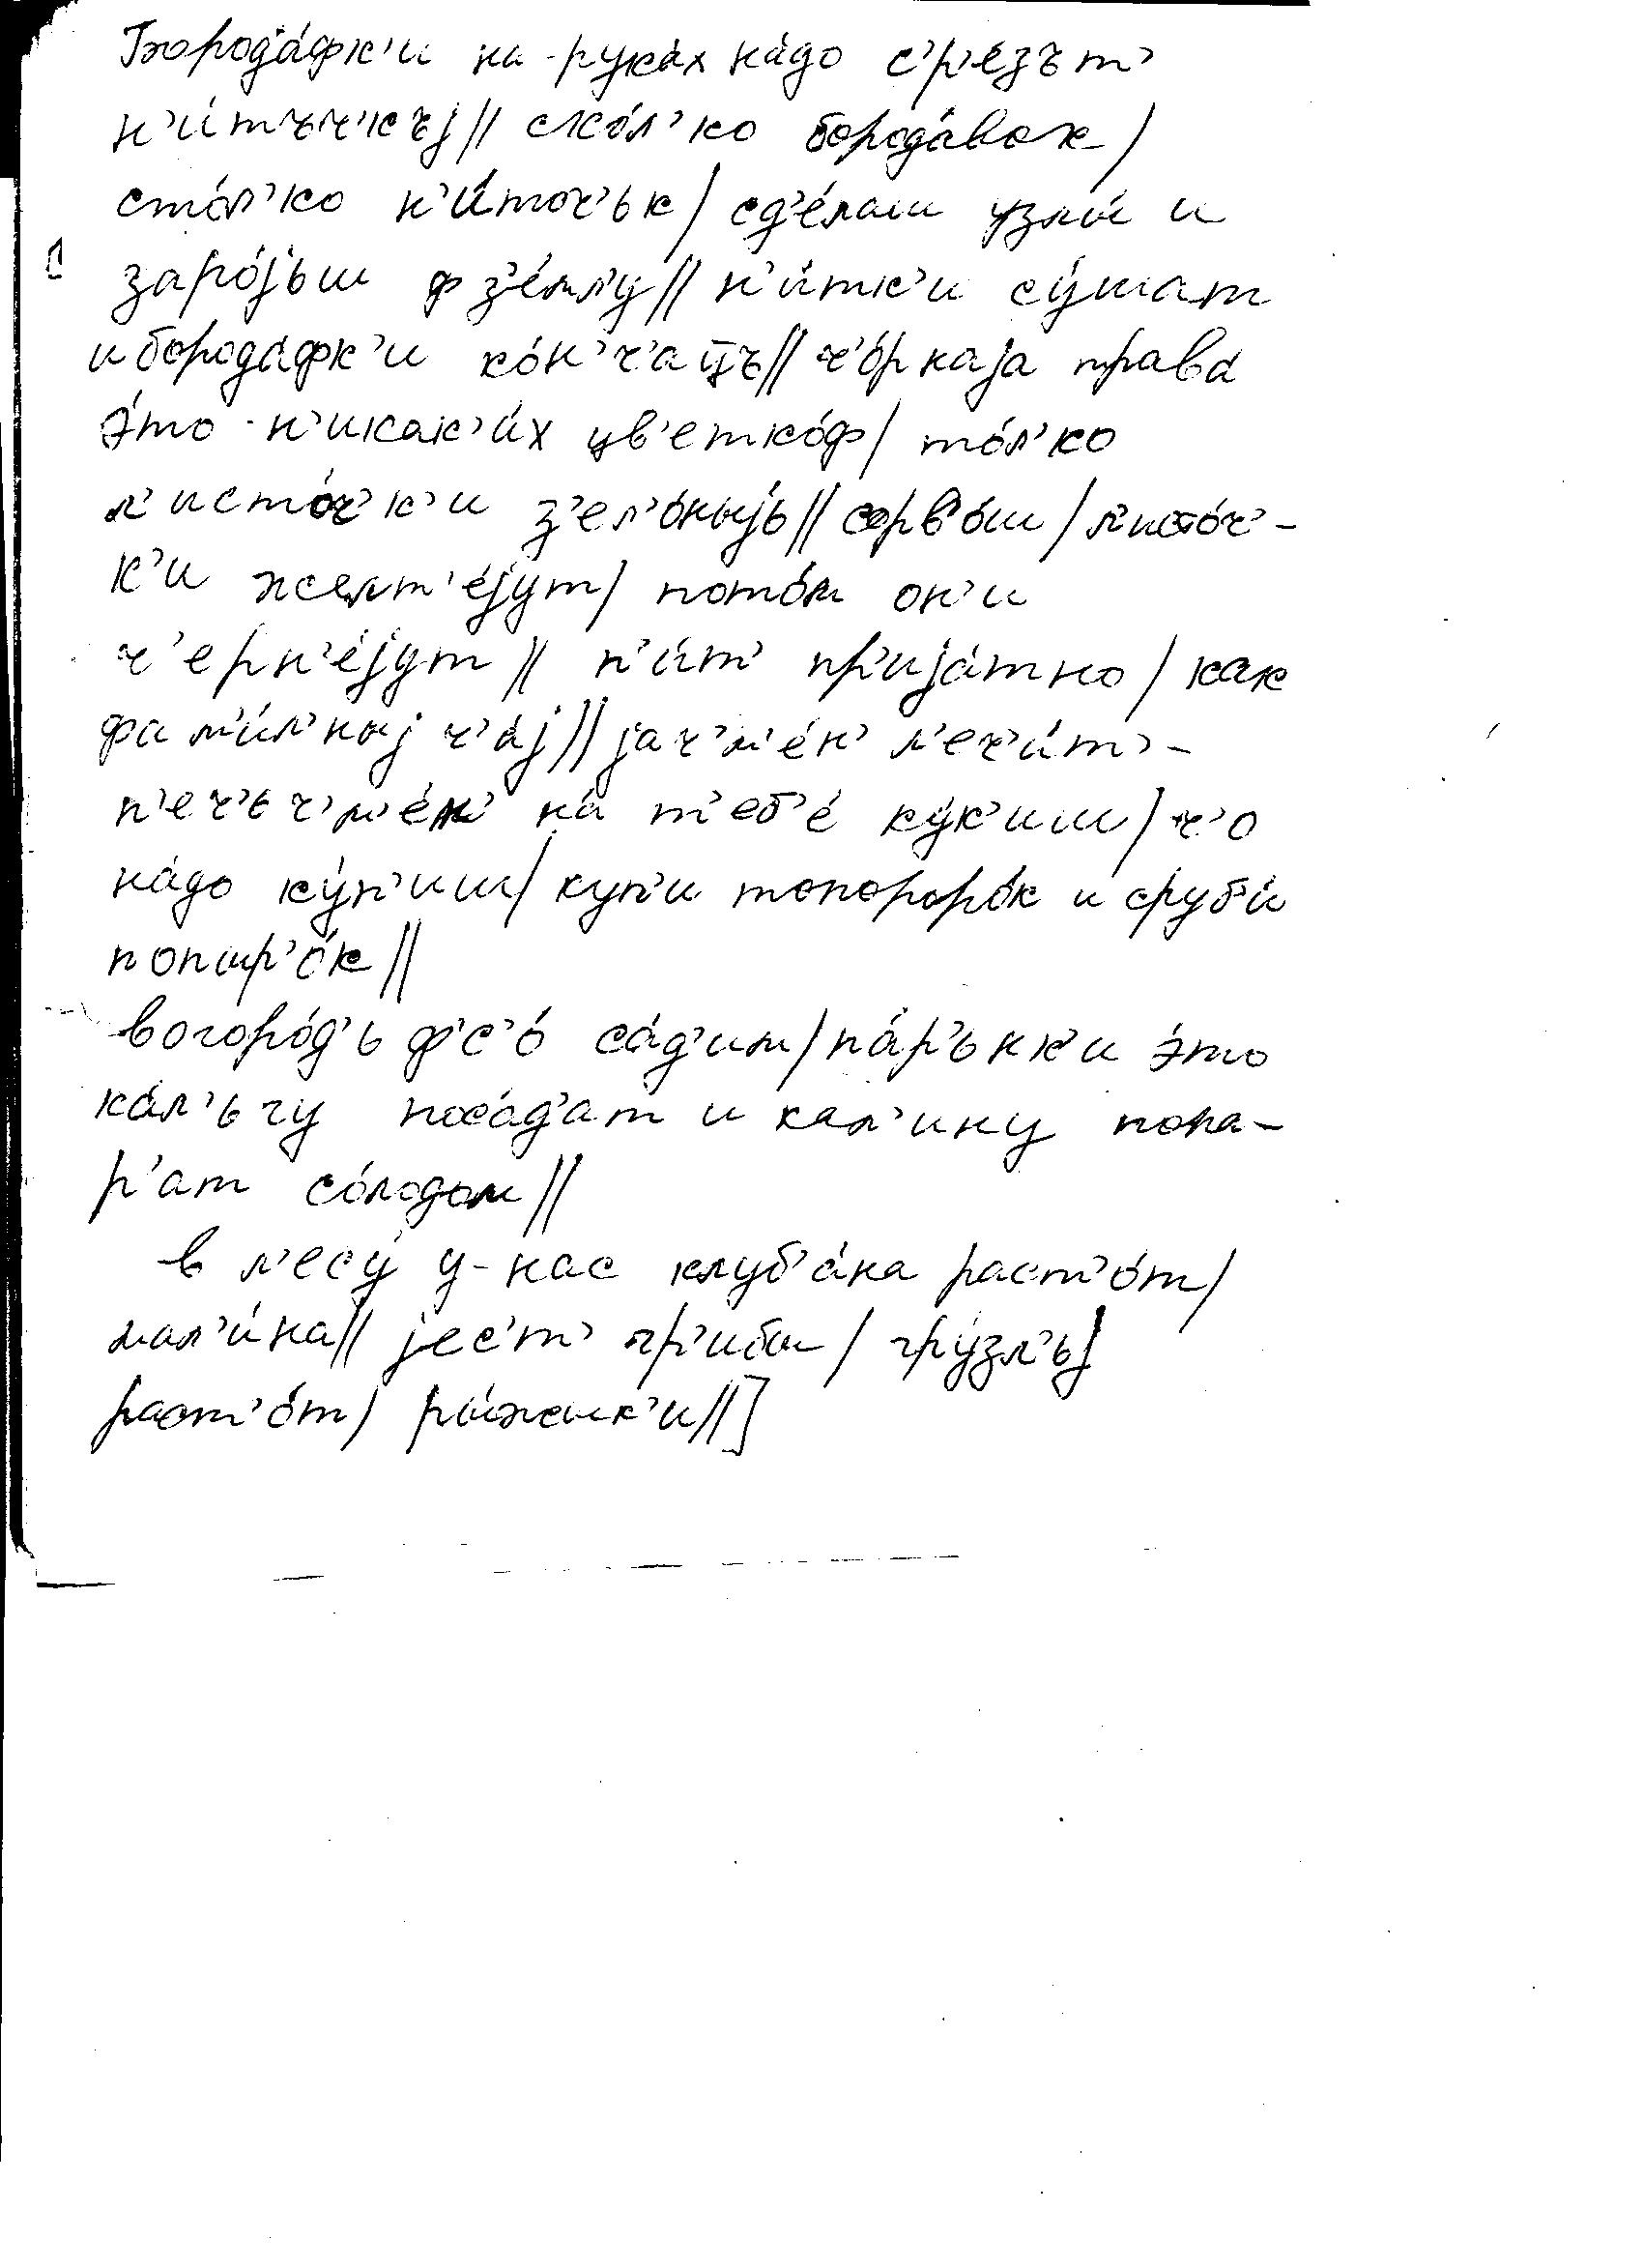 Бородáфк'и на-рукáх нáдо с'р'éзът'
н'и́тъч'къj// скóл'ко бородáвок/
стóл'ко н'и́точ'ьк/ сд'éлаш узлы́ и
зарójьш ф з'éмл'у// н'и́тк'и су́шат
и бородáфк'и кóн'ч'аццъ// ч'óрнаjа трава
э́то н'икак'и́х цв'еткóф/ тóл'ко
л'истóч'к'и з'ел'óныjь// сорв'óш/ л'истóч'-
к'и желт'éjут/ потóм он'и
ч'ерн'éjут// п'и́т' пр'иjáтно/ как
фам'и́л'ныj ч'áj// jач'м'éн' л'еч'и́т'-
п'еч'ьч'м'éн' нá т'еб'é ку́к'иш/ ч'о
нáдо ку́п'иш/ куп'и топорорóк и сруб'и́
попир'óк//
в огорóд'ь ф'с'ó сáд'им/ пáр'ьнк'и э́то
кáл'ьгу посáд'ат и кал'ину попа-
р'ат сóлодом//
в л'есу́ у-нас клуб'áна раст'óт/
мал'и́на// jес'т' гр'ибы/ гру́зл'ьj
раст'óт/ ры́жык'и//]